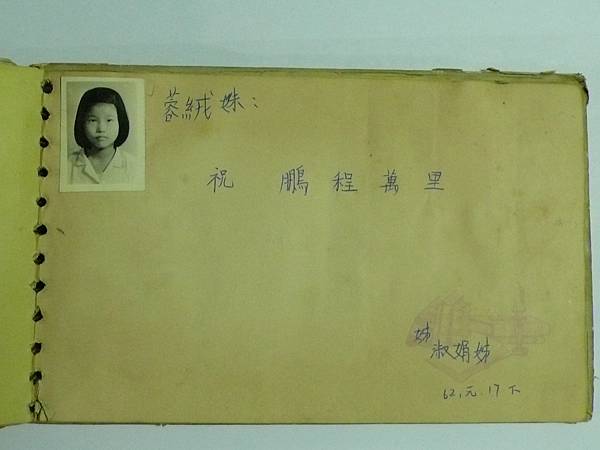 蓉絨妹：
祝 鵬程萬里
姊
淑娟姊
62.元.17下